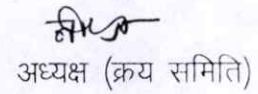 अध्यक्ष (क्रय समिति)